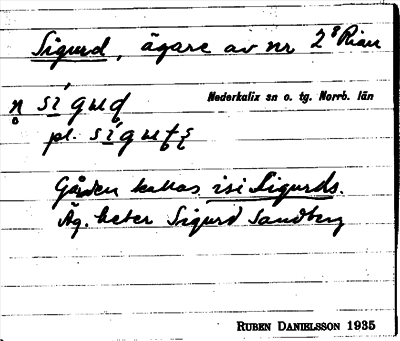 Sigurd, ägare av nr 2⁸ Rian
Nederkalix sn o. tg. Norrb. län
pl.
Gården kallas isi Sigurds.
Äg. heter Sigurd Sandberg
RUBEN DANIELSSON 1935